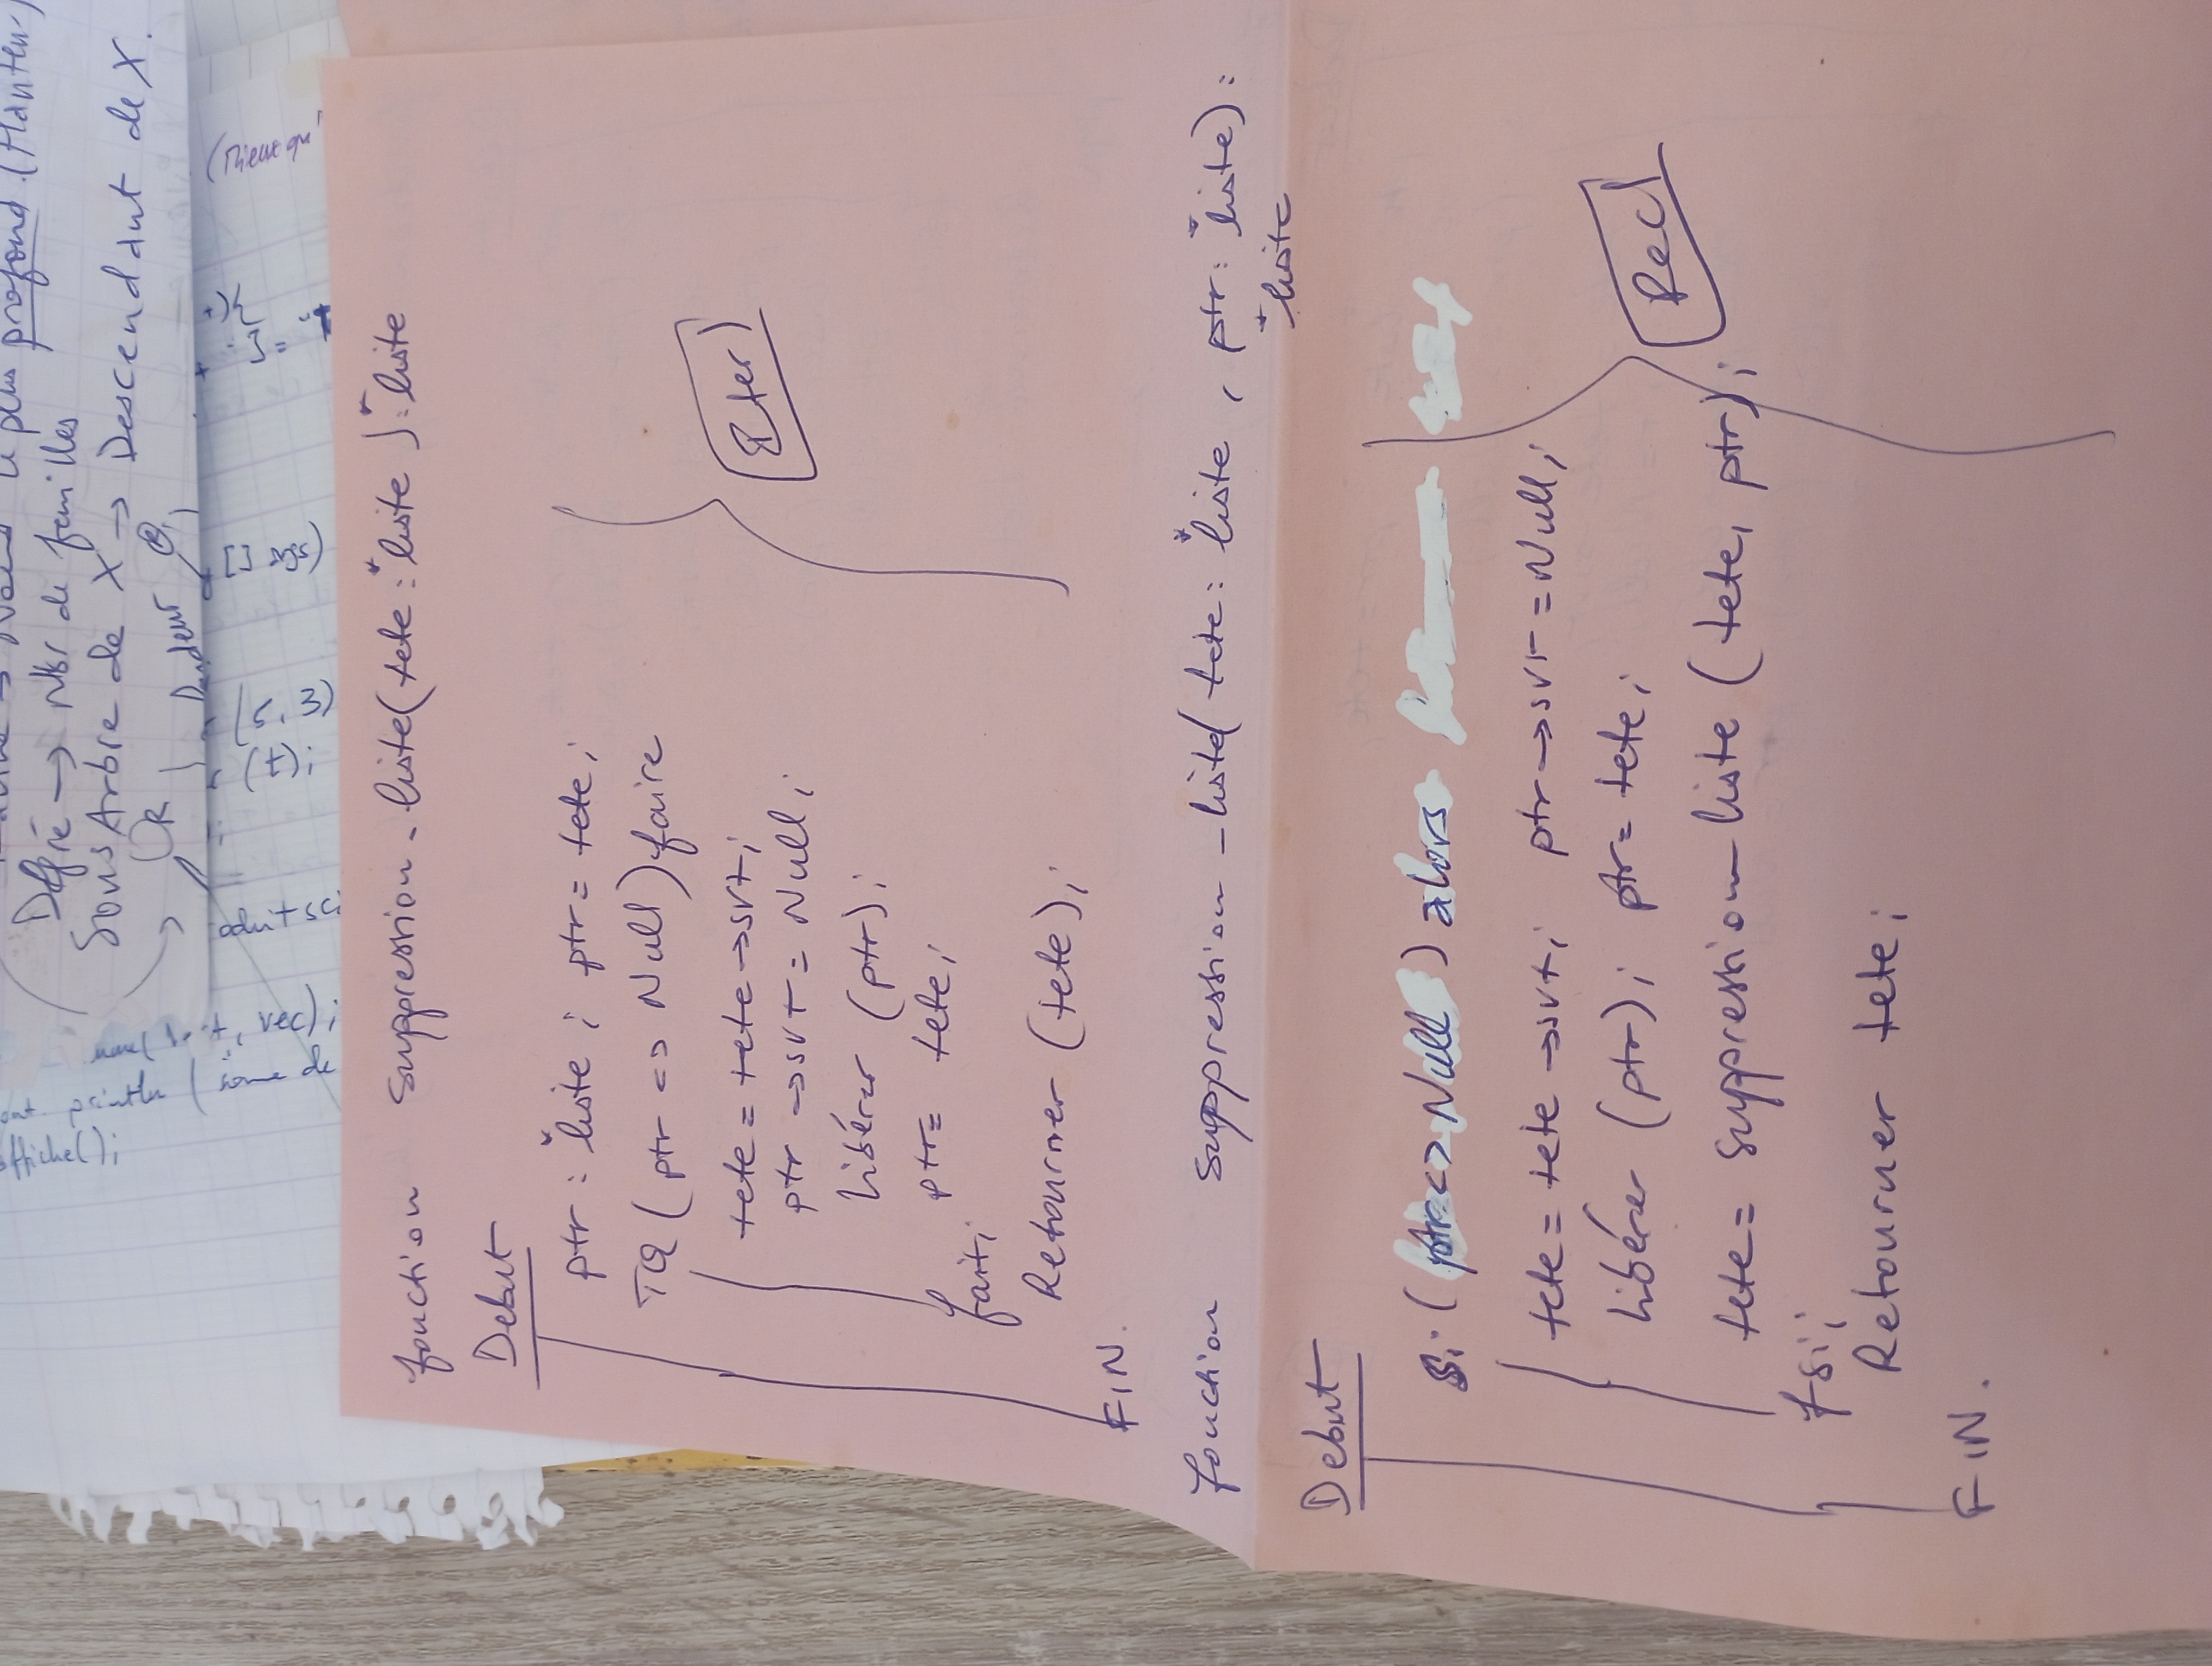 le plus profond. (Hauteur)
Degré → Nbr de feuilles
Sous Arbre de X → Descendant de X.
R
R
affiche();
println (
(t);
(5, 3)
[] args)
fonction suppression_liste(tete : *liste) : *liste
Debut
ptr : *liste ; ptr = tete ;
TQ (ptr <> Null) faire
tete = tete → svt ;
ptr → svt = Null ;
libérer (ptr) ;
ptr = tete ;
fait ;
Retourner (tete) ;
FIN.
Iter
fonction suppression_liste( tete : *liste , ptr : *liste) :
*liste
Debut
Si ( ptr <> Null ) alors
tete = tete → svt ; ptr → svt = Null ;
libérer (ptr) ; ptr = tete ;
tete = suppression_liste ( tete, ptr) ;
fsi ;
Retourner tete ;
FIN.
Rec